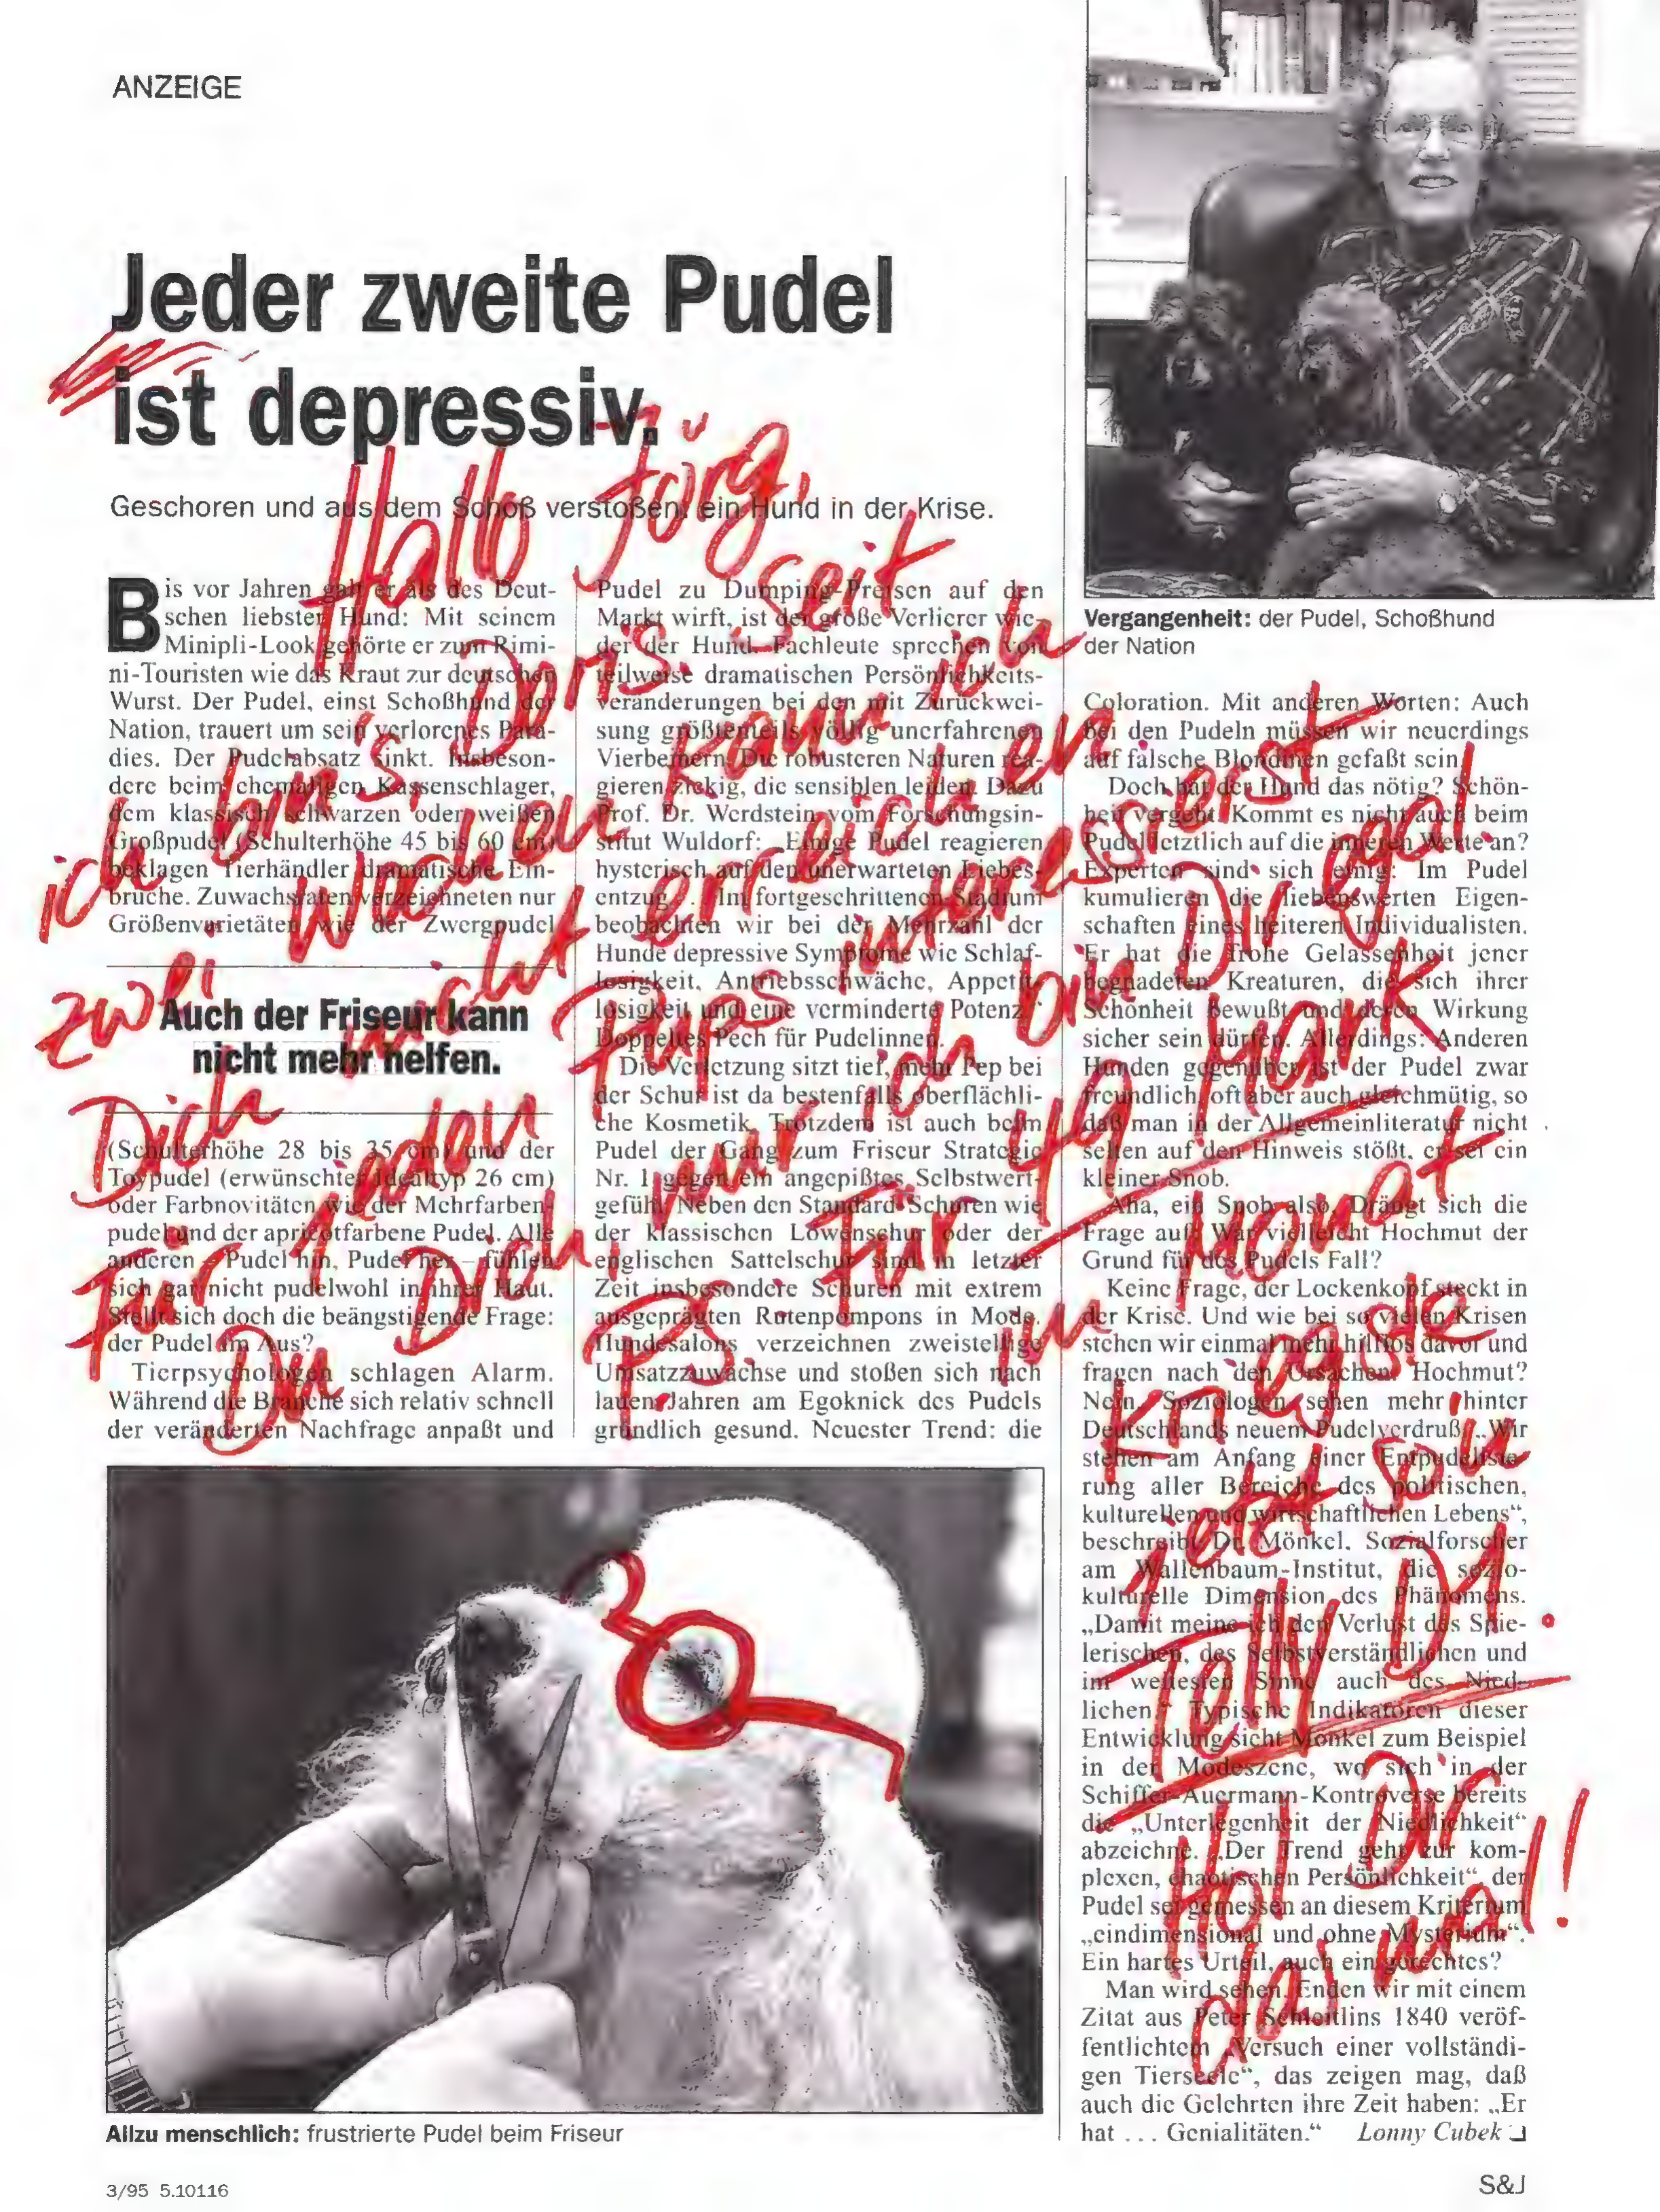 ANZEIGE
Jeder zweite Pudel
ist depressiv.
Geschoren und aus dem Schoß verstoßen: ein Hund in der Krise.
Bis vor Jahren galt er als des Deut-
schen liebster Hund: Mit seinem
Minipli-Look gehörte er zum Rimi-
ni-Touristen wie das Kraut zur deutschen
Wurst. Der Pudel, einst Schoßhund der
Nation, trauert um sein verlorenes Para-
dies. Der Pudelabsatz sinkt. Insbeson-
dere beim ehemaligen Kassenschlager,
dem klassisch schwarzen oder weißen
Großpudel (Schulterhöhe 45 bis 60 cm)
beklagen Tierhändler dramatische Ein-
brüche. Zuwachsraten verzeichneten nur
Größenvarietäten wie der Zwergpudel
Auch der Friseur kann
nicht mehr helfen.
(Schulterhöhe 28 bis 35 cm) und der
Toypudel (erwünschter Idealtyp 26 cm)
oder Farbnovitäten wie der Mehrfarben-
pudel und der apricotfarbene Pudel. Alle
anderen – Pudel hin, Pudel her – fühlen
sich gar nicht pudelwohl in ihrer Haut.
Stellt sich doch die beängstigende Frage:
der Pudel im Aus?
Tierpsychologen schlagen Alarm.
Während die Branche sich relativ schnell
der veränderten Nachfrage anpaßt und
Pudel zu Dumping-Preisen auf den
Markt wirft, ist der große Verlierer wie-
der der Hund. Fachleute sprechen von
teilweise dramatischen Persönlichkeits-
veränderungen bei den mit Zurückwei-
sung größtenteils völlig unerfahrenen
Vierbeinern. Die robusteren Naturen rea-
gieren zickig, die sensiblen leiden. Dazu
Prof. Dr. Werdstein vom Forschungsin-
stitut Wuldorf: „Einige Pudel reagieren
hysterisch auf den unerwarteten Liebes-
entzug... Im fortgeschrittenen Stadium
beobachten wir bei der Mehrzahl der
Hunde depressive Symptome wie Schlaf-
losigkeit, Antriebsschwäche, Appetit-
losigkeit und eine verminderte Potenz.“
Doppeltes Pech für Pudelinnen.
Die Verletzung sitzt tief, mehr Pep bei
der Schur ist da bestenfalls oberflächli-
che Kosmetik. Trotzdem ist auch beim
Pudel der Gang zum Friseur Strategie
Nr. 1 gegen ein angepißtes Selbstwert-
gefühl. Neben den Standard-Schuren wie
der klassischen Löwenschur oder der
englischen Sattelschur sind in letzter
Zeit insbesondere Schuren mit extrem
ausgeprägten Rutenpompons in Mode.
Hundesalons verzeichnen zweistellige
Umsatzzuwächse und stoßen sich nach
lauen Jahren am Egoknick des Pudels
gründlich gesund. Neuester Trend: die
Vergangenheit: der Pudel, Schoßhund
der Nation
Coloration. Mit anderen Worten: Auch
bei den Pudeln müssen wir neuerdings
auf falsche Blondinen gefaßt sein.
Doch hat der Hund das nötig? Schön-
heit vergeht. Kommt es nicht auch beim
Pudel letztlich auf die inneren Werte an?
Experten sind sich einig: Im Pudel
kumulieren die liebenswerten Eigen-
schaften eines heiteren Individualisten.
Er hat die frohe Gelassenheit jener
begnadeten Kreaturen, die sich ihrer
Schönheit bewußt und deren Wirkung
sicher sein dürfen. Allerdings: Anderen
Hunden gegenüber ist der Pudel zwar
freundlich, oft aber auch gleichmütig, so
daß man in der Allgemeinliteratur nicht
selten auf den Hinweis stößt, er sei ein
kleiner Snob.
Aha, ein Snob also. Drängt sich die
Frage auf: War vielleicht Hochmut der
Grund für des Pudels Fall?
Keine Frage, der Lockenkopf steckt in
der Krise. Und wie bei so vielen Krisen
stehen wir einmal mehr hilflos davor und
fragen nach den Ursachen. Hochmut?
Nein. Soziologen sehen mehr hinter
Deutschlands neuem Pudelverdruß. „Wir
stehen am Anfang einer Entpudelisie-
rung aller Bereiche des politischen,
kulturellen und wirtschaftlichen Lebens“,
beschreibt Dr. Mönkel, Sozialforscher
am Wallenbaum-Institut, die sozio-
kulturelle Dimension des Phänomens.
„Damit meine ich den Verlust des Spie-
lerischen, des Selbstverständlichen und
im weitesten Sinne auch des Nied-
lichen.“ Typische Indikatoren dieser
Entwicklung sieht Mönkel zum Beispiel
in der Modeszene, wo sich in der
Schiffer-Auermann-Kontroverse bereits
die „Unterlegenheit der Niedlichkeit“
abzeichne. „Der Trend geht zur kom-
plexen, chaotischen Persönlichkeit“, der
Pudel sei gemessen an diesem Kriterium
„eindimensional und ohne Mysterium“.
Ein hartes Urteil, auch ein gerechtes?
Man wird sehen. Enden wir mit einem
Zitat aus Peter Scheitlins 1840 veröf-
fentlichtem „Versuch einer vollständi-
gen Tierseele“, das zeigen mag, daß
auch die Gelehrten ihre Zeit haben: „Er
hat ... Genialitäten.“ Lonny Cubek
Allzu menschlich: frustrierte Pudel beim Friseur
3/95 5.10116
S&J
Hallo Jörg,
ich bin's, Doris. Seit
zwei Wochen kann ich
Dich nicht erreichen
Für jeden Pups interessierst
Du Dich, nur ich bin Dir egal.
PS. Für 49 Mark
im Monat
kriegste
jetzt son
Telly D1.
Hol Dir
das mal!!